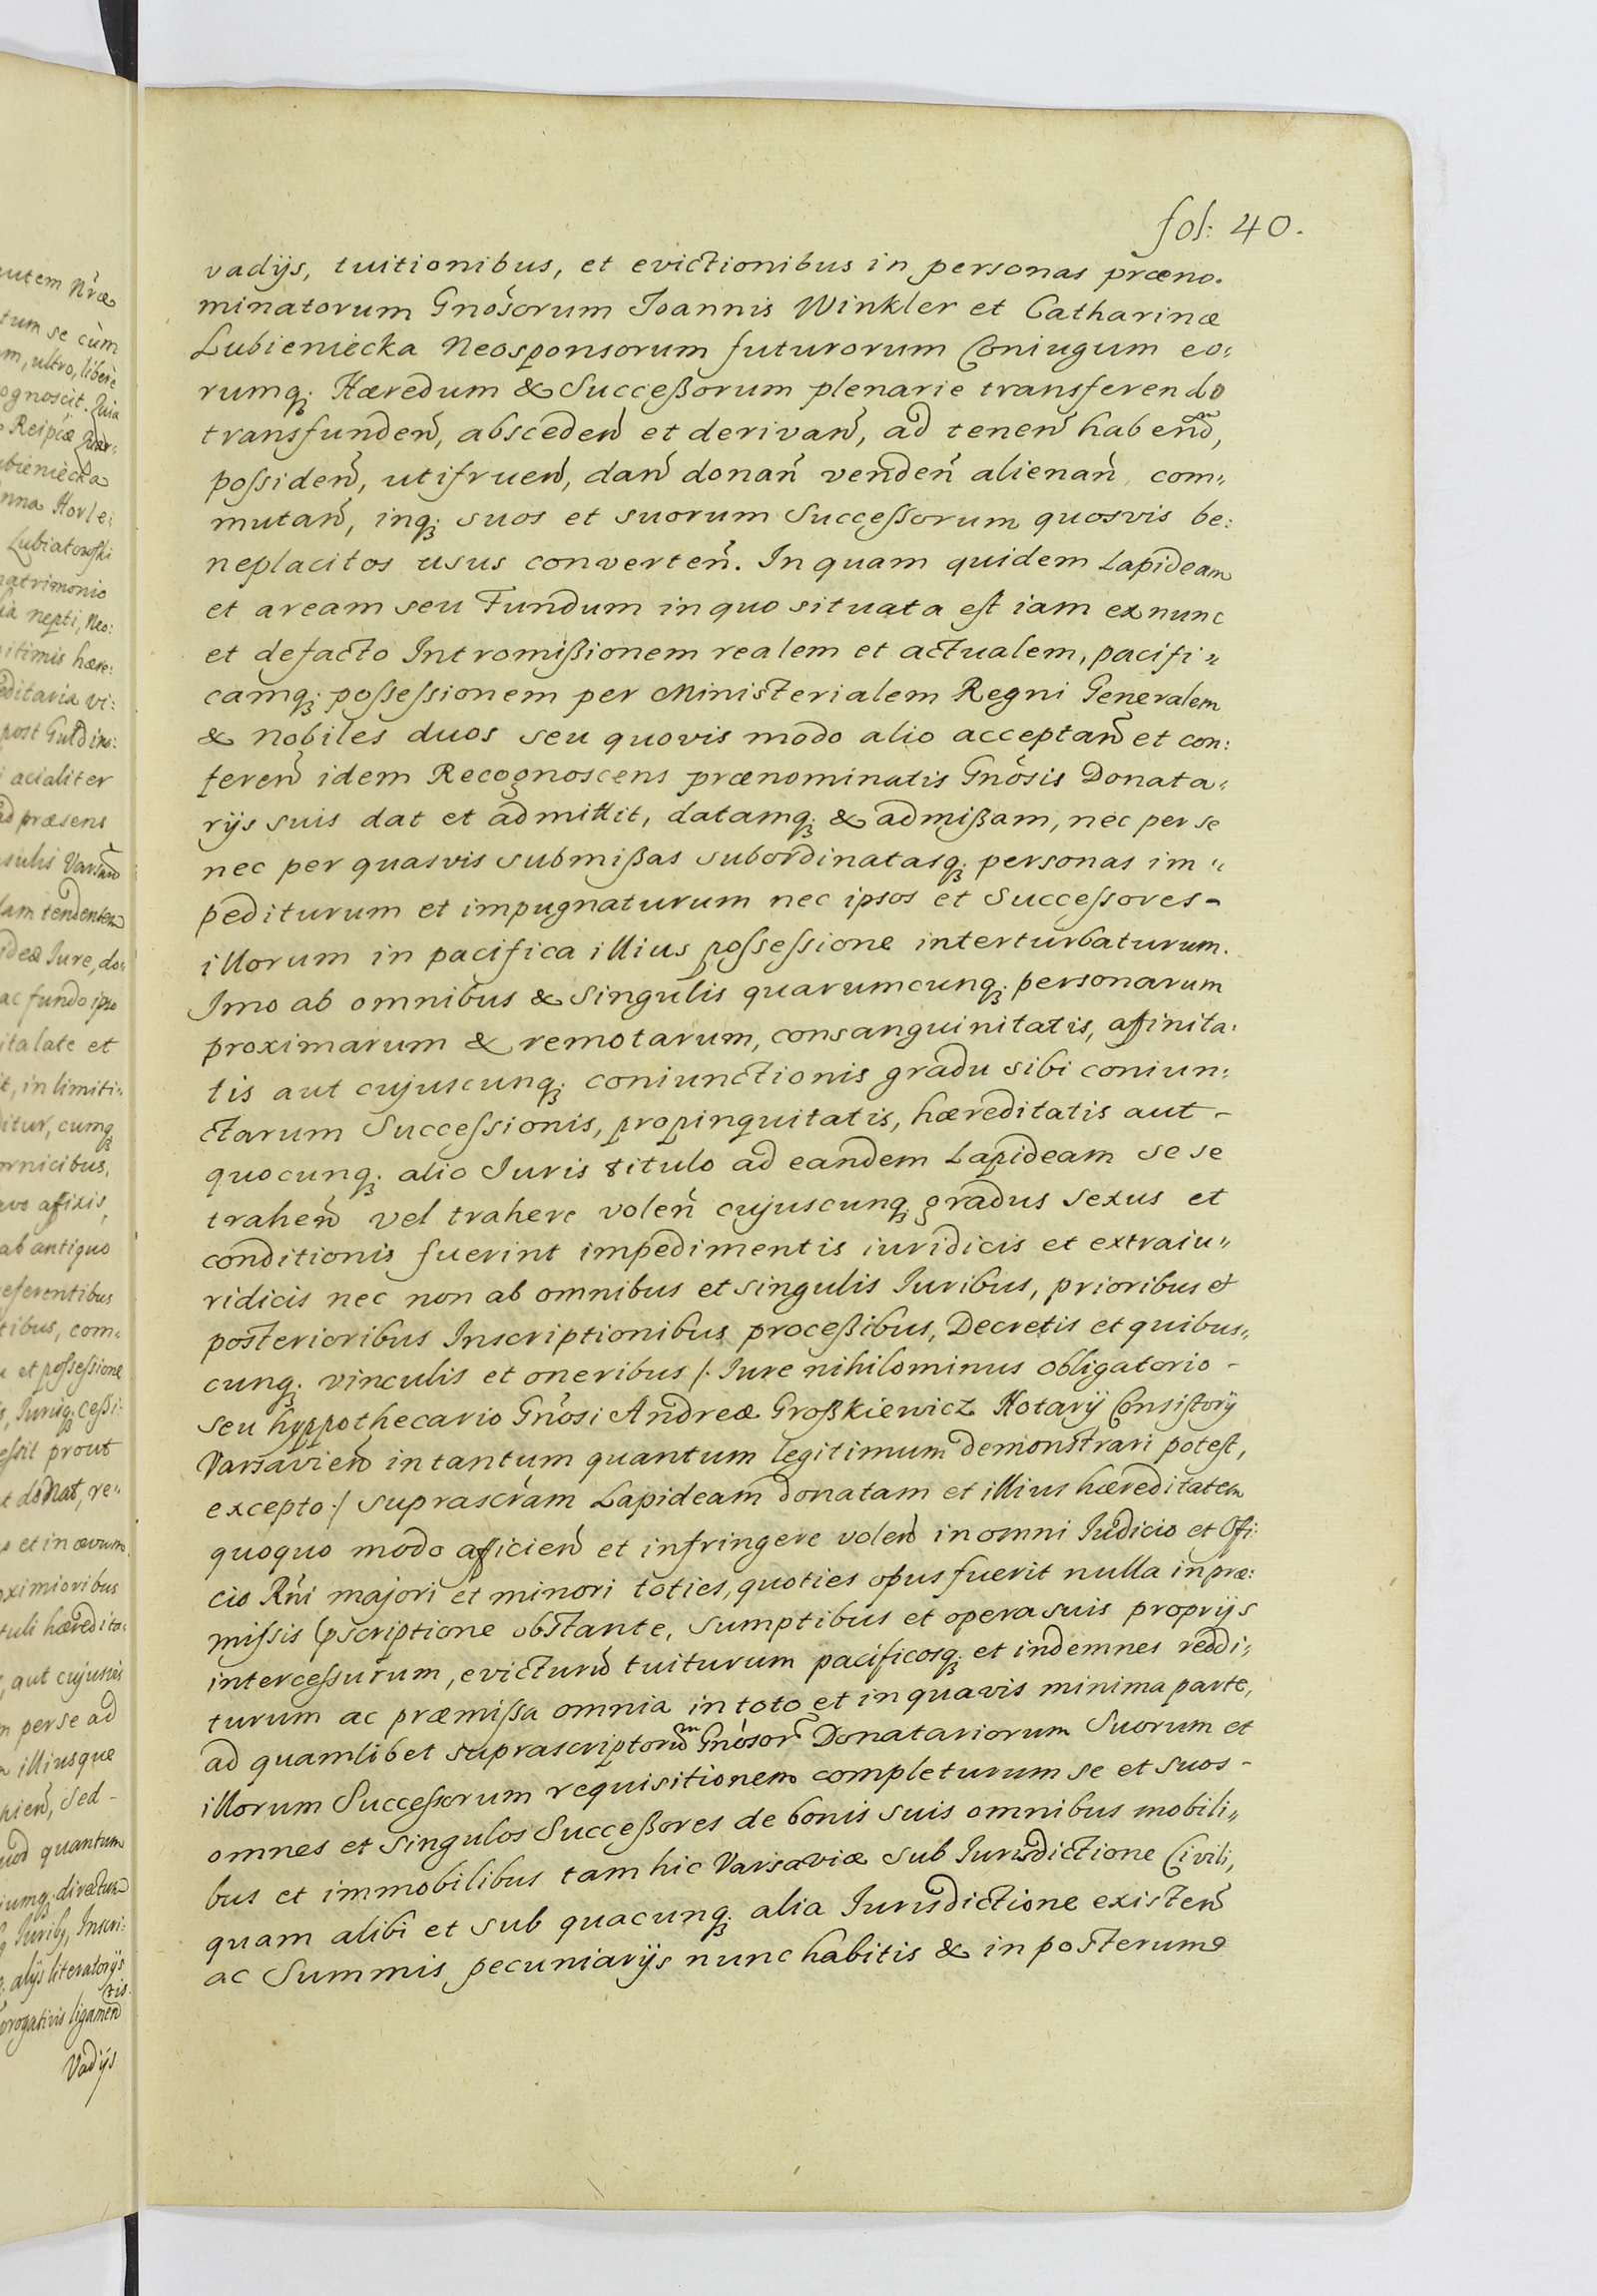 fol: 40.
vadijs, tuitionibus, et evictionibus in personas præno.
minatorum Gnōsorum Joannis Winkler et Catharinæ
Lubieniecka Neosponsorum futurorum Coniugum eo:
rumq; Hæredum & Succeßorum plenarie transferendo
transfunden̄, absceden̄ et derivan̄, ad tenen̄ habend̄,
poſsiden̄, utifruen̄, dan̄ donan̄ venden̄ alienan̄, com„
mutan̄, inq; suos et suorum Succeſsorum quosvis be:
neplacitos usus converten̄. In quam quidem Lapideam
et aream seu Fundum in quo situata eſt iam ex nunc
et defacto Intromißionem realem et actualem, pacifi„
camq; poſseſsionem per Ministerialem Regni Generalem
& Nobiles duos seu quovis modo alio acceptan̄ et con:
feren̄ idem Recognoscens prænominatis Gnōsis Donata:
rijs suis dat et admittit, datamq; & admißam, nec per se
nec per quasvis submißas subordinatasq; personas im„
pediturum et impugnaturum nec ipsos et Succeſsores-
illorum in pacifica illius poſseſsione interturbaturum.
Imo ab omnibus & singulis quarumcunq; personarum
proximarum & remotarum, consanguinitatis, affinita:
tis aut cujuscunq; coniunctionis gradu sibi coniun:
ctarum Succeſsionis, propinquitatis, hæreditatis aut -
quocunq; alio Juris titulo ad eandem Lapideam se se
trahen̄ vel trahere volen̄ cujuscunq; gradus sexus et
conditionis fuerint impedimentis iuridicis et extraiu„
ridicis nec non ab omnibus et singulis Juribus, prioribus et
posterioribus Inscriptionibus proceßibus, Decretis et quibus„
cunq; vinculis et oneribus /. Jure nihilominus obligatorio -
seu hyppothecario Gnōsi Andreæ Großkiewicz Notarij Consiſtorij
Varsavien̄ in tantum quantum legitimum demonstrari poteſt,
excepto ./ suprascr̄am Lapideam donatam et illius hæreditatem
quoquo modo afficien̄ et infringere volen̄ in omni Judicio et Offi:
cio Rn̄i majori et minori toties, quoties opus fuerit nulla in præ:
miſsis p̄scriptione obstante, sumptibus et opera suis proprijs
interceſsurum, evicturū tuiturum pacificosq; et indemnes reddi„
turum ac præmiſsa omnia in toto et in quavis minima parte,
ad quamlibet suprascriptorum Gnōsor̄ Donatariorum Suorum et
illorum Succeſsorum requisitionem completurum se et suos -
omnes et singulos Succeßores de bonis suis omnibus mobili„
bus et immobilibus tam hic Varsaviæ sub Jurisdictione Civili,
quam alibi et sub quacunq; alia Jurisdictione existen̄
ac Summis pecuniarijs nunc habitis & in posterum
utem Nr̄æ
tum se cùm
m, ultro, liberè
ognoscit. Quia
Reipcæ
bieniecka
nna Horle:
Lubiatowſki
matrimonio
nepti, Neo:
itimis hære:
editaria vi:
post
acialiter
ad præsens
sulis Varsav̄
lam tendentem
ideæ Jure, do:
ac fundo ipso
ita late et
it, in limiti„
ditur, cumq;
ornicibus,
affixis,
ab antiquo
eferentibus
tibus, com„
et poſseſsione
Jurisq; ceßi:
eſsit prout
t donat, re„
et in ævum
oximioribus
tuli hæredita:
, aut cujusvis
m per se ad
illiusque
pien̄, sed -
uod quantum
iumq; directum
Inscri:
alijs literatorijs
tis
rogativis ligamen̄
Vadijs